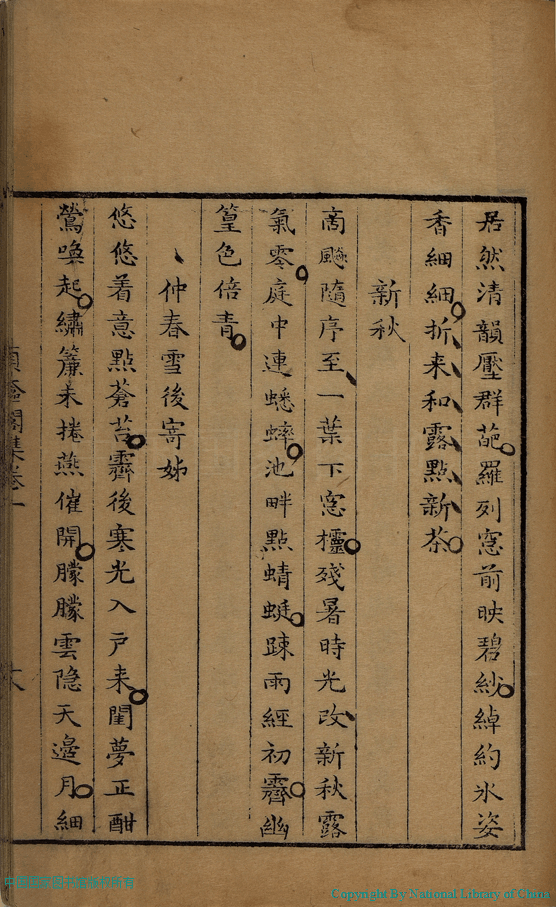 居然清韻壓群葩羅列窓前映碧紗綽約氷姿
香細細折来和露點新茶
新秋
商飈隨序至一葉下窓櫺殘暑時光改新秋露
氣零庭中連蟋蟀池畔點蜻蜓踈雨經初霽幽
篁色倍青
仲春雪後寄姊
悠悠着意點蒼苔霽後寒光入戸来閨夢正酣
鶯喚起繡簾未捲燕催開朦朦雲隐天邉月細
Copyright By National Library of China